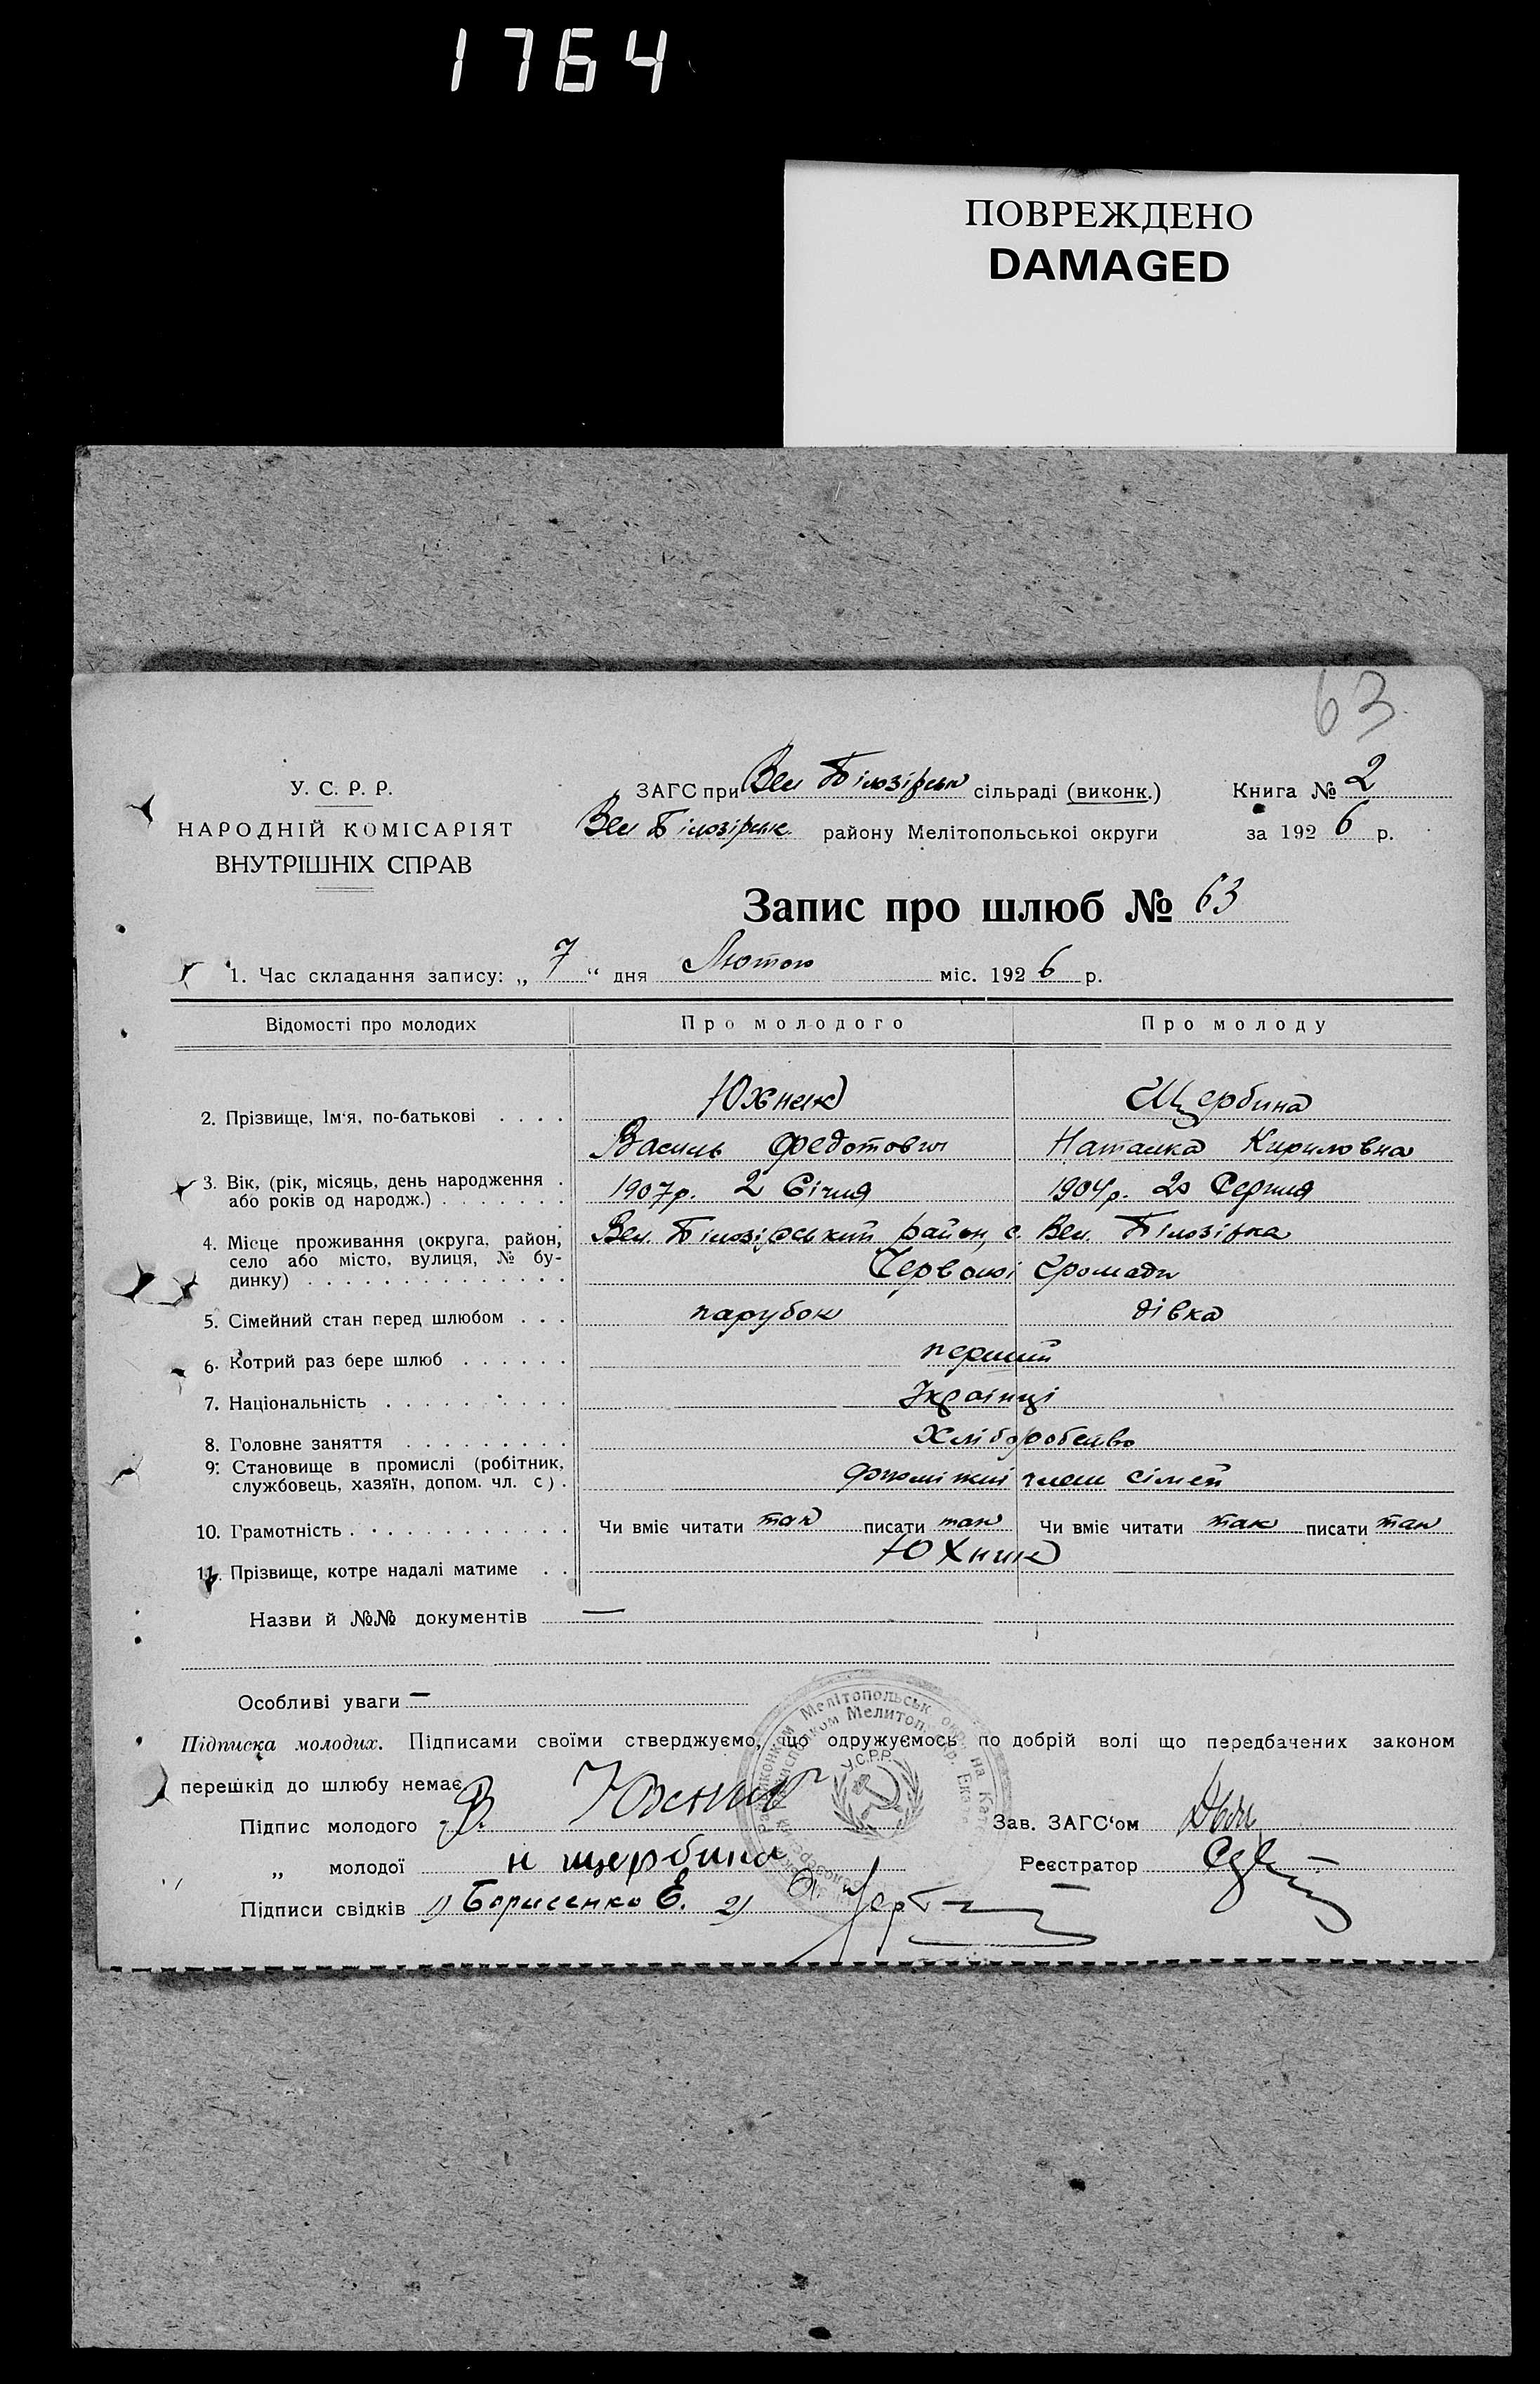 1764
ПОВРЕЖДЕНО
DAMAGED
63
У. С. Р. Р.
НАРОДНІЙ КОМІСАРІЯТ
ВНУТРІШНІХ СПРАВ
ЗАГС при Вел Білозірськ сільраді (виконк.)
Вел Білозірськ. району Мелітопольської округи
Книга № 2
за 1926 р.
Запис про шлюб № 63
1. Час складання запису: „ 7 “ дня Лютого міс. 1926 р.
Відомості про молодих Про молодого Про молоду
2. Прізвище, Ім‘я, по-батькові . . . . Юхник Щербина
Василь Федотович Наталка Кириловна
3. Вік, (рік, місяць, день народження . або років од народж.) . . . . . . . 1907р. 2 Січня 1904р. 20 Серпня
4. Місце проживання (округа, район, село або місто, вулиця, № будинку) . . . . . . . . . . . . . . Вел. Білозірський район, с. Вел. Білозірка
Червоної Громади
5. Сімейний стан перед шлюбом . . . парубок дівка
6. Котрий раз бере шлюб . . . . . . перший
7. Національність . . . . . . . . . . Українці
8. Головне заняття . . . . . . . . . Хліборобство
9. Становище в промислі (робітник, службовець, хазяїн, допом. чл. с) . члени сімей
10. Грамотність . . . . . . . . . . . . Чи вміє читати так писати так Чи вміє читати так писати так
11. Прізвище, котре надалі матиме . . Юхник
Назви й №№ документів —
Особливі уваги —
Підписка молодих. Підписами своїми стверджуємо, що одружуємось по добрій волі що передбачених законом
перешкід до шлюбу немає
У.С.Р.Р.
Підпис молодого В. Юхник Зав. ЗАГС‘ом
„ молодої н щербина Реєстратор
Підписи свідків 1) Борисенко Е. 2)